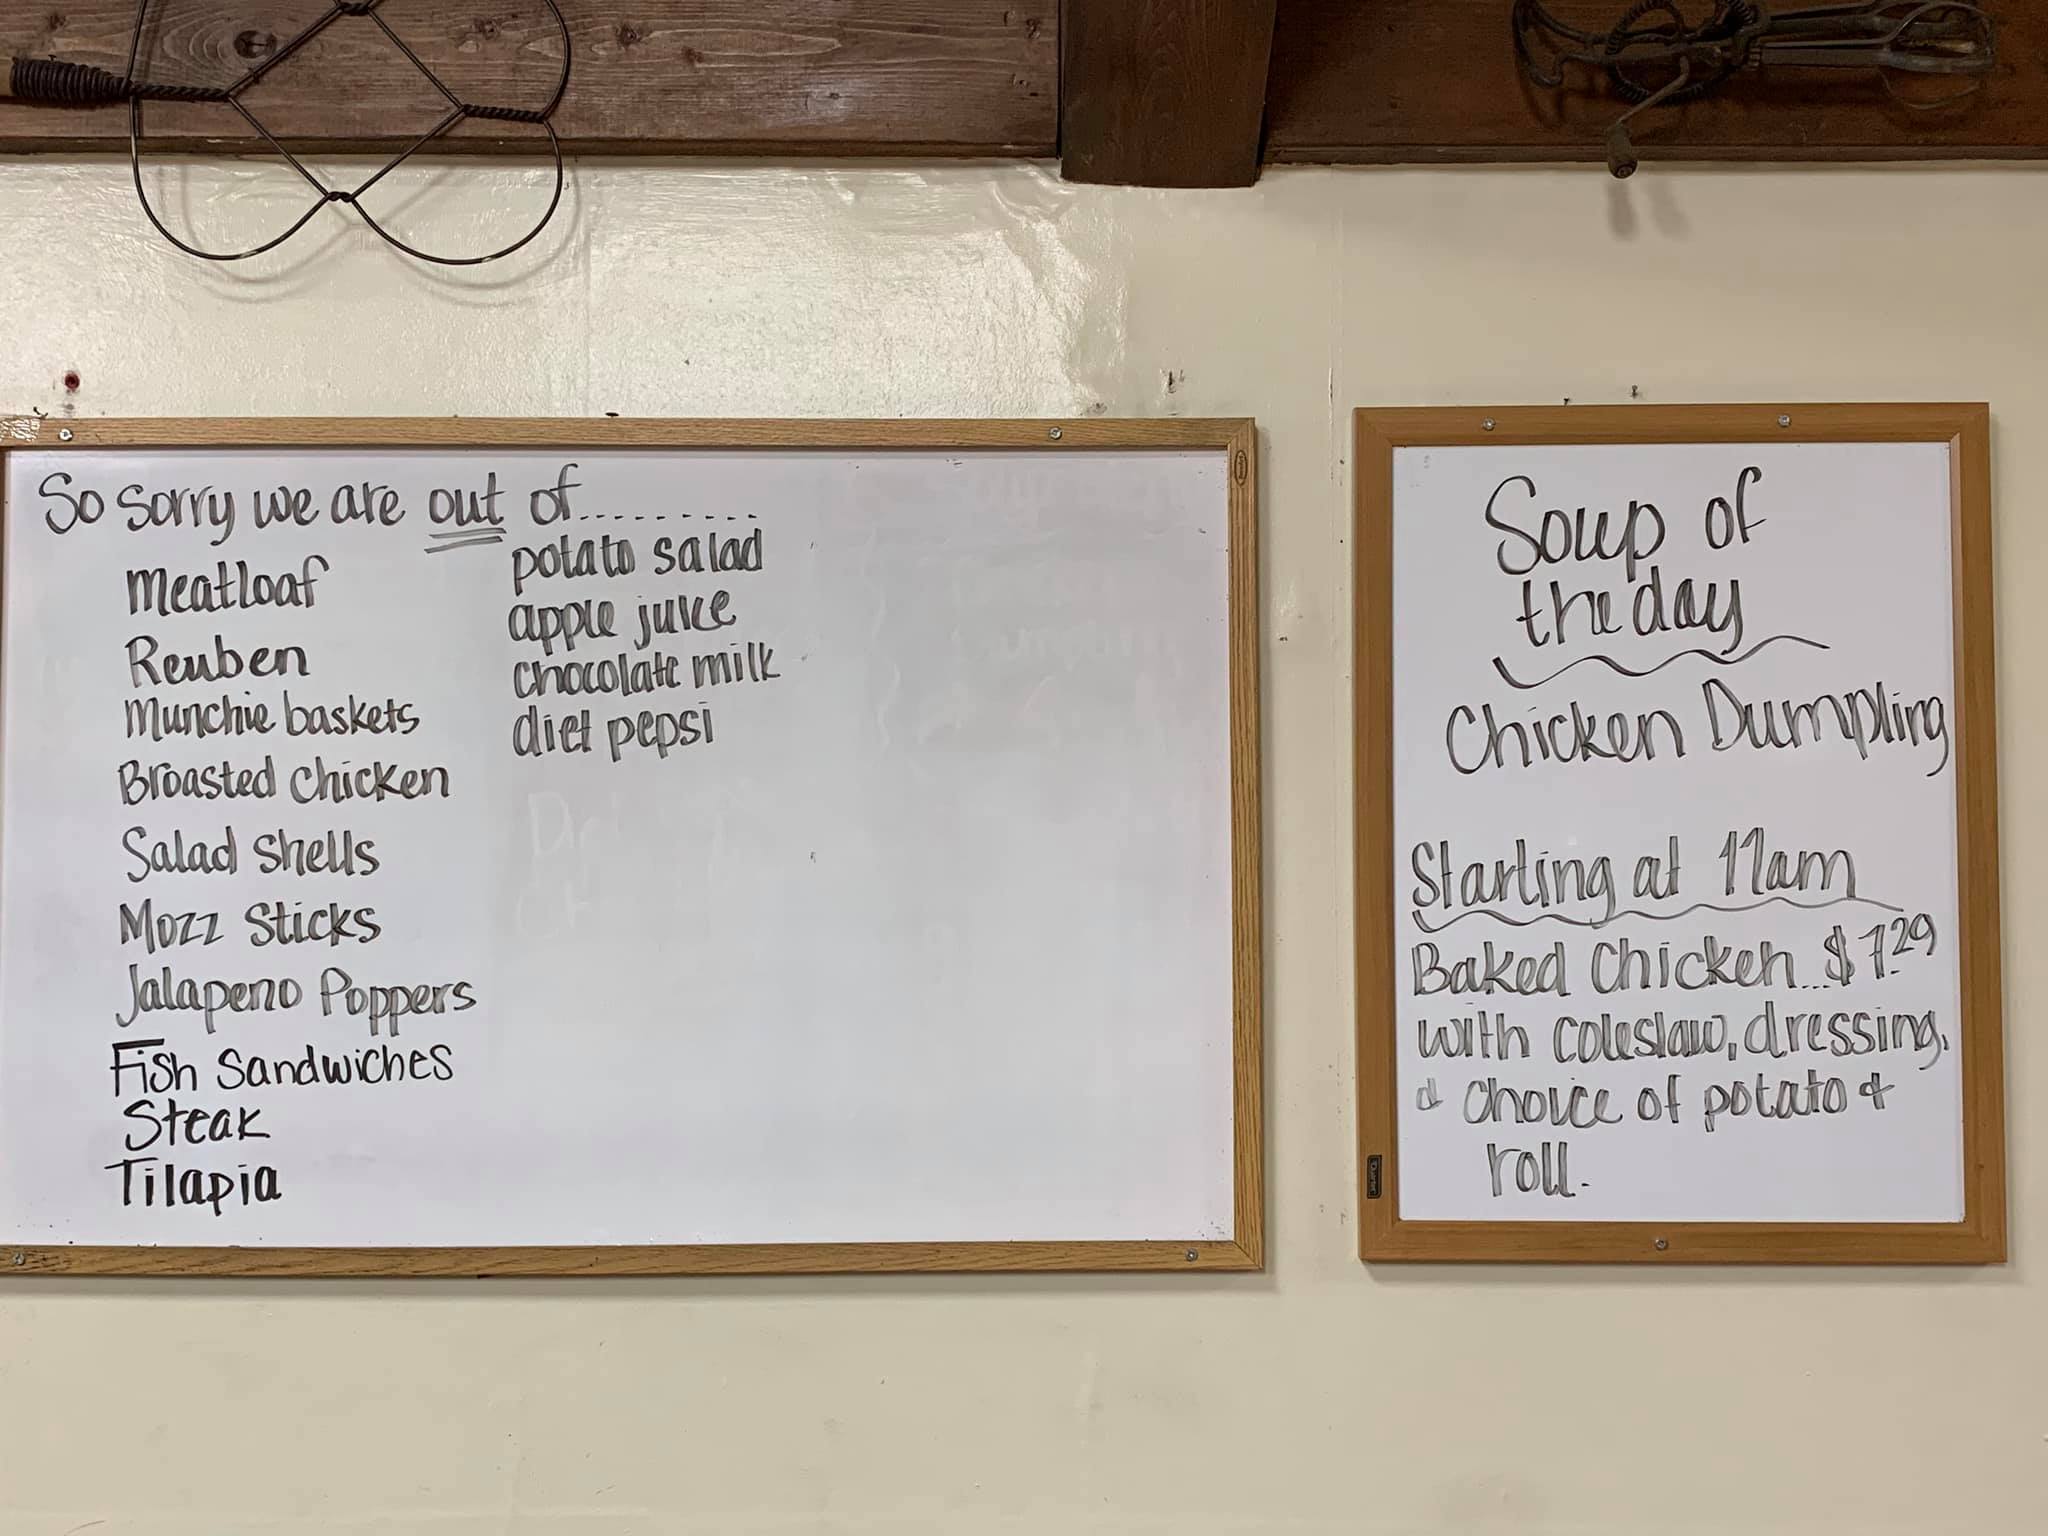 So sorry we are out of.........
Meatloaf
Reuben
Munchie baskets
Broasted chicken
Salad shells
Mozz Sticks
Jalapeno Poppers
Fish Sandwiches
Steak
Tilapia
potato salad
apple juice
chocolate milk
diet pepsi
Soup of
the day
Chicken Dumpling
Starting at 11am
Baked Chicken...$7.29
with coleslaw, dressing,
& choice of potato &
roll.
Quartet